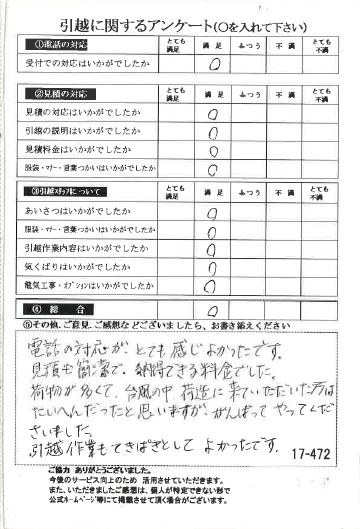 引越に関するアンケート(○を入れて下さい)
①電話の対応 とても満足 満足 ふつう 不満 とても不満
受付での対応はいかがでしたか ○
②見積の対応 とても満足 満足 ふつう 不満 とても不満
見積の対応はいかがでしたか ○
引越の説明はいかがでしたか ○
見積料金はいかがでしたか ○
服装・マナー・言葉づかいはいかがでしたか ○
③引越スタッフについて とても満足 満足 ふつう 不満 とても不満
あいさつはいかがでしたか ○
服装・マナー・言葉つかいはいかがでしたか ○
引越作業内容はいかがでしたか ○
気くばりはいかがでしたか ○
電気工事・オプションはいかがでしたか ○
④ 総 合 ○
⑤その他、ご意見、ご感想などございましたら、お書き添えください
電話の対応が、とても感じよかったです。
見積も簡潔で、納得できる料金でした。
荷物が多くて、台風の中、荷造に来ていただいた方は
たいへんだったと思いますが、がんばってやってくだ
さいました。
引越作業もてきぱきとしてよかったです。
17-472
ご協力 ありがとうございました。
今後のサービス向上のため 活用させていただきます。
また、いただきましたご感想は、個人が特定できない形で
公式ホームページ等にて掲載させて頂く場合がございます。